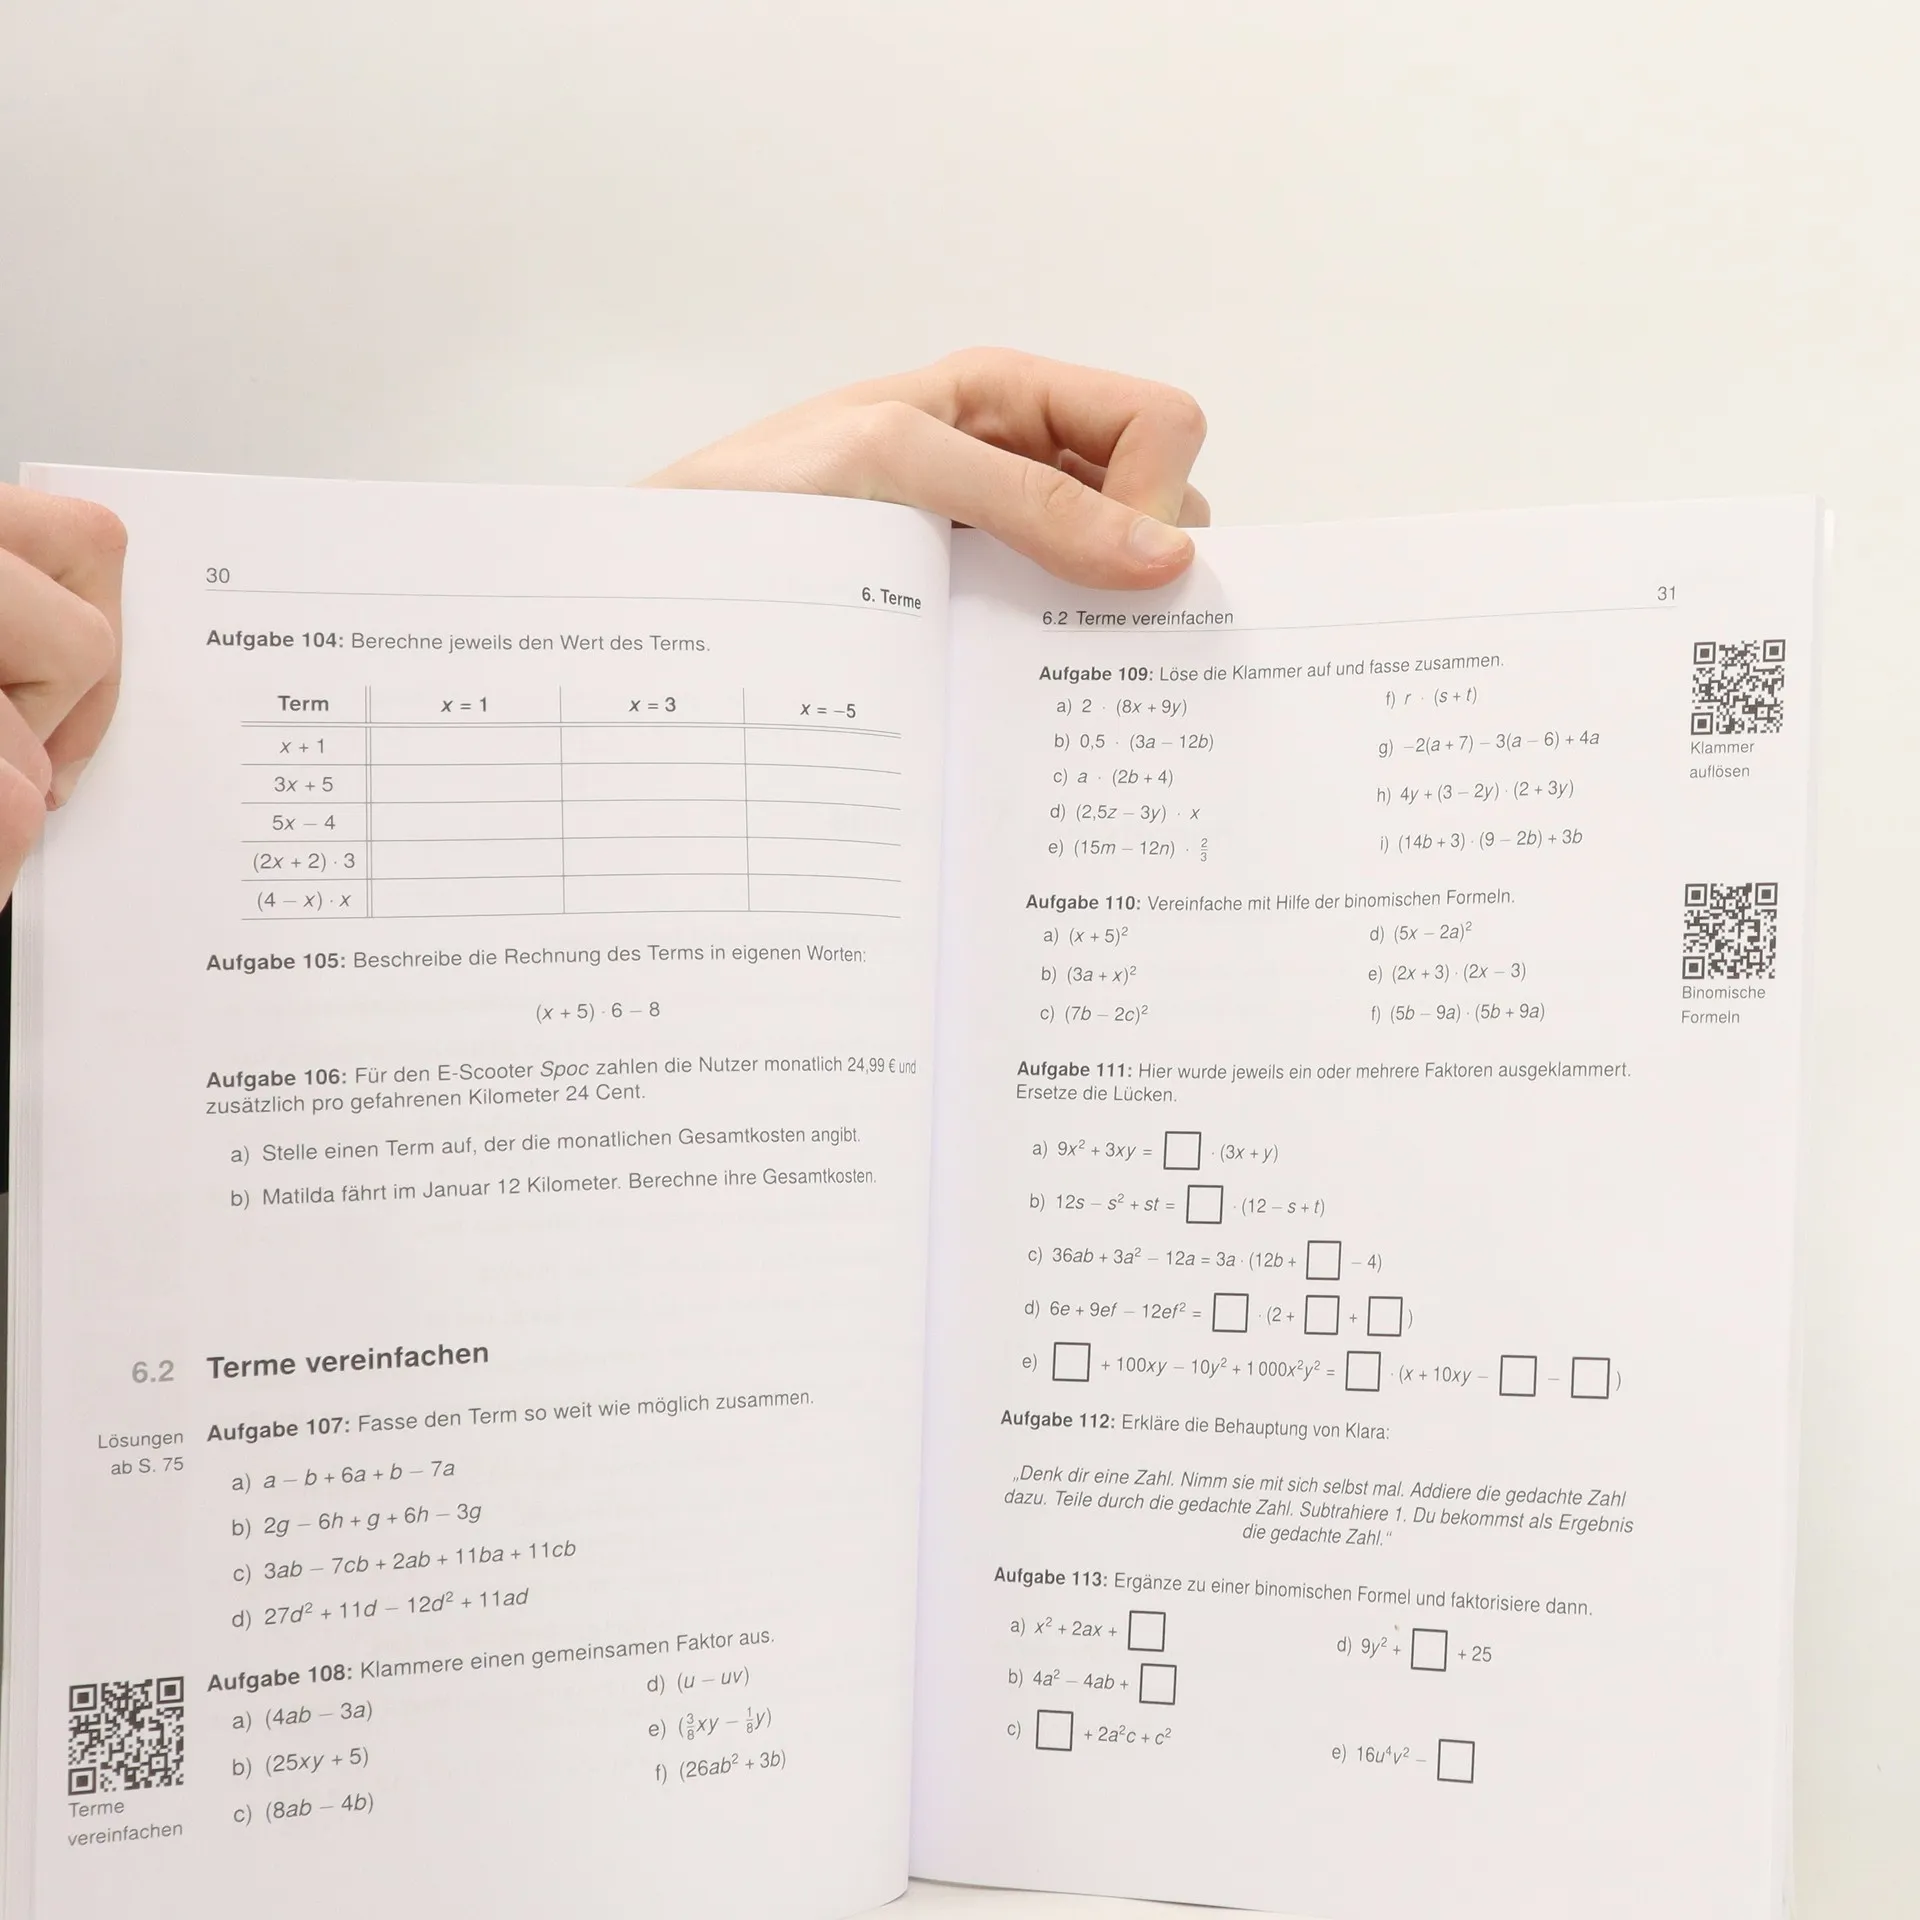 30
6. Terme
Aufgabe 104: Berechne jeweils den Wert des Terms.
Term x = 1 x = 3 x = −5
x + 1
3x + 5
5x − 4
(2x + 2) · 3
(4 − x) · x
Aufgabe 105: Beschreibe die Rechnung des Terms in eigenen Worten:
(x + 5) · 6 − 8
Aufgabe 106: Für den E-Scooter Spoc zahlen die Nutzer monatlich 24,99 € und
zusätzlich pro gefahrenen Kilometer 24 Cent.
a) Stelle einen Term auf, der die monatlichen Gesamtkosten angibt.
b) Matilda fährt im Januar 12 Kilometer. Berechne ihre Gesamtkosten.
6.2 Terme vereinfachen
Lösungen
ab S. 75
Aufgabe 107: Fasse den Term so weit wie möglich zusammen.
a) a − b + 6a + b − 7a
b) 2g − 6h + g + 6h − 3g
c) 3ab − 7cb + 2ab + 11ba + 11cb
d) 27d² + 11d − 12d² + 11ad
Aufgabe 108: Klammere einen gemeinsamen Faktor aus.
a) (4ab − 3a)
b) (25xy + 5)
c) (8ab − 4b)
d) (u − uv)
e) (3/8xy − 1/8y)
f) (26ab² + 3b)
Terme
vereinfachen
6.2 Terme vereinfachen
31
Aufgabe 109: Löse die Klammer auf und fasse zusammen.
a) 2 · (8x + 9y)
b) 0,5 · (3a − 12b)
c) a · (2b + 4)
d) (2,5z − 3y) · x
e) (15m − 12n) · 2/3
f) r · (s + t)
g) −2(a + 7) − 3(a − 6) + 4a
h) 4y + (3 − 2y) · (2 + 3y)
i) (14b + 3) · (9 − 2b) + 3b
Klammer
auflösen
Aufgabe 110: Vereinfache mit Hilfe der binomischen Formeln.
a) (x + 5)²
b) (3a + x)²
c) (7b − 2c)²
d) (5x − 2a)²
e) (2x + 3) · (2x − 3)
f) (5b − 9a) · (5b + 9a)
Binomische
Formeln
Aufgabe 111: Hier wurde jeweils ein oder mehrere Faktoren ausgeklammert.
Ersetze die Lücken.
a) 9x² + 3xy = □ · (3x + y)
b) 12s − s² + st = □ · (12 − s + t)
c) 36ab + 3a² − 12a = 3a · (12b + □ − 4)
d) 6e + 9ef − 12ef² = □ · (2 + □ + □)
e) □ + 100xy − 10y² + 1000x²y² = □ · (x + 10xy − □ − □)
Aufgabe 112: Erkläre die Behauptung von Klara:
„Denk dir eine Zahl. Nimm sie mit sich selbst mal. Addiere die gedachte Zahl
dazu. Teile durch die gedachte Zahl. Subtrahiere 1. Du bekommst als Ergebnis
die gedachte Zahl.“
Aufgabe 113: Ergänze zu einer binomischen Formel und faktorisiere dann.
a) x² + 2ax + □
b) 4a² − 4ab + □
c) □ + 2a²c + c²
d) 9y² + □ + 25
e) 16u⁴v² − □